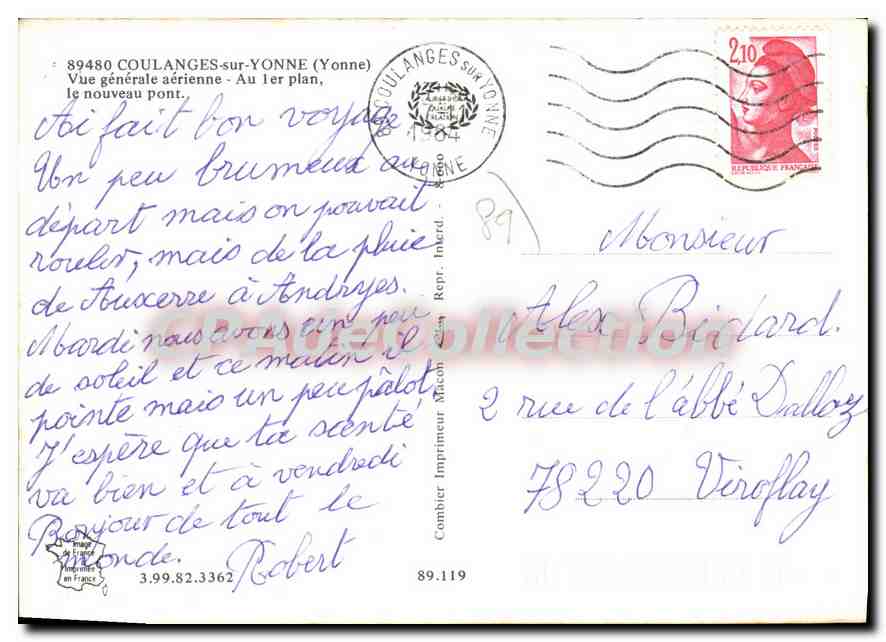 89480 COULANGES-sur-YONNE (Yonne)
Vue générale aérienne - Au 1er plan,
le nouveau pont..
Ai fait bon voyage
Un peu brumeux au
départ mais on pouvait
rouler, mais de la pluie
de Auxerre à Andryes.
Mardi nous avons un peu
de soleil et ce matin il
pointe mais un peu pâlot.
J'espère que ta scenté
va bien et à vendredi
Bonjour de tout le
monde. Robert
Image
de France
Imprimée
en France
3.99.82.3362
89.119
Combier Imprimeur Macon Repr. Interd.
COULANGES sur YONNE
1984
YONNE
2,10
REPUBLIQUE FRANÇAISE
89
Monsieur
Alex Bidard.
2 rue de l'abbé Dalloz
78220 Viroflay
CPAdeCollection